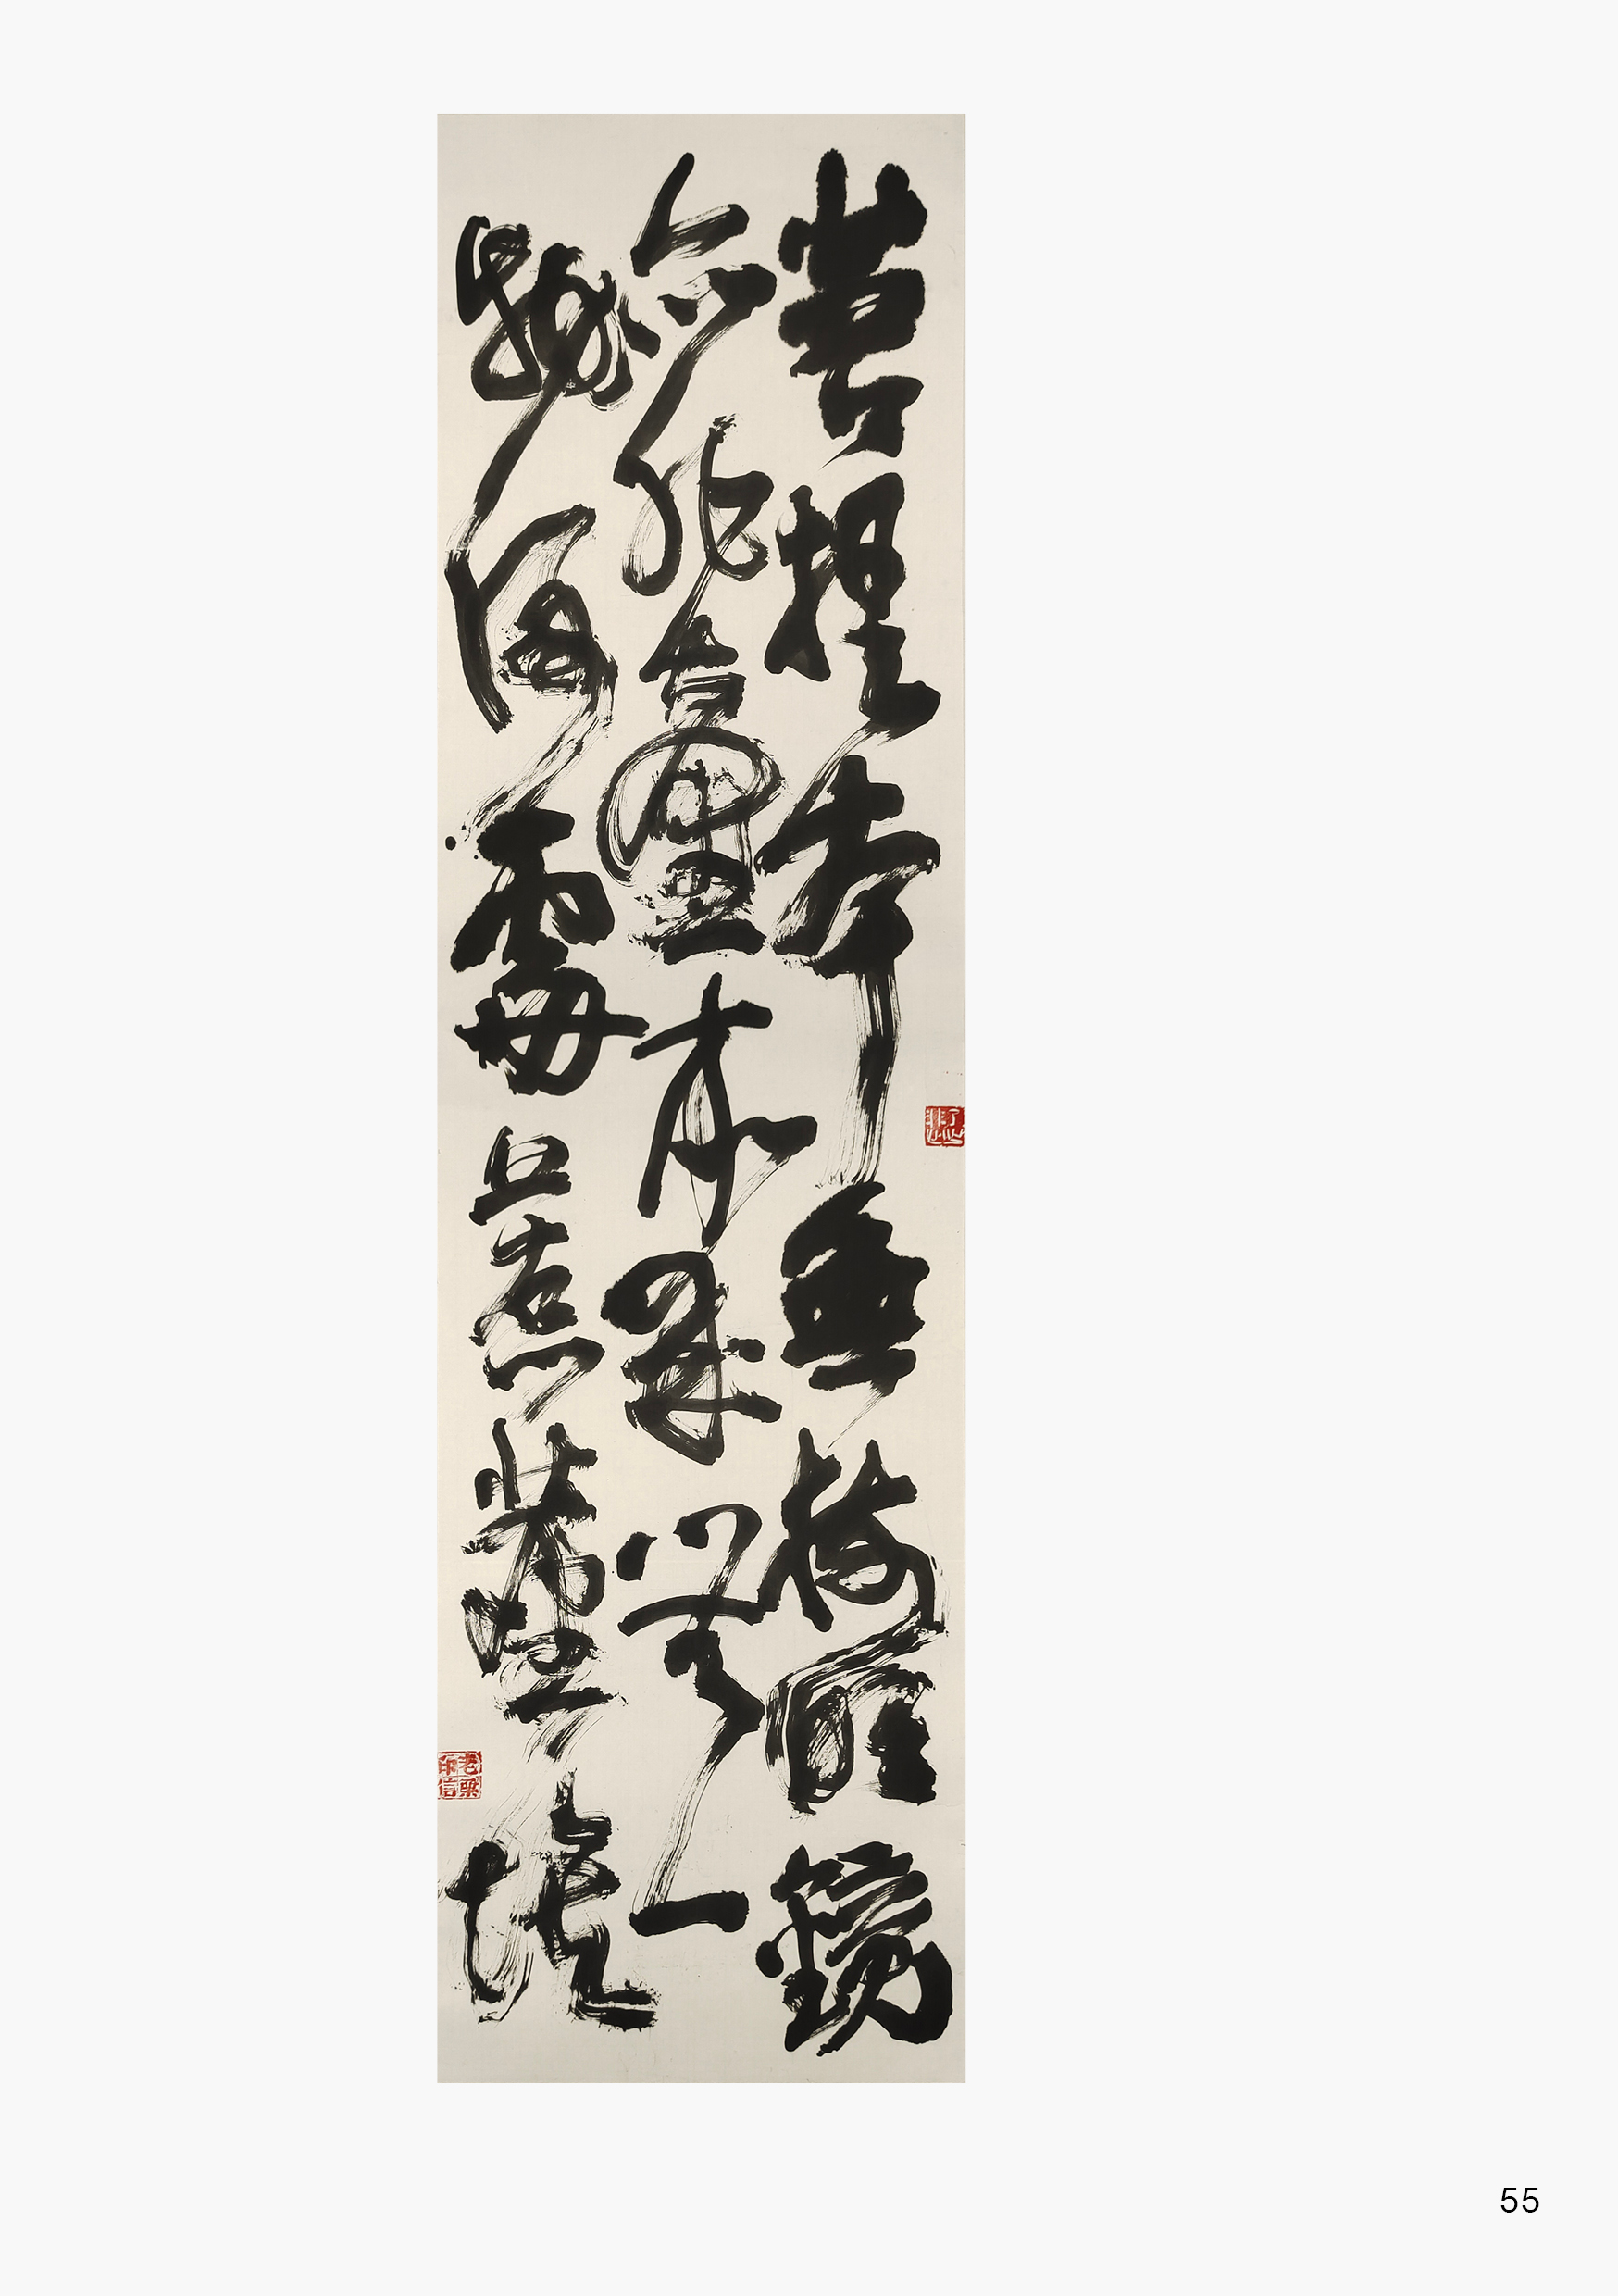 菩提本無樹明鏡
亦非臺本來無一
物何處惹塵埃
55